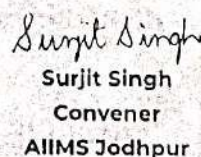 Surjit Singh
Surjit Singh
Convener
AIIMS Jodhpur